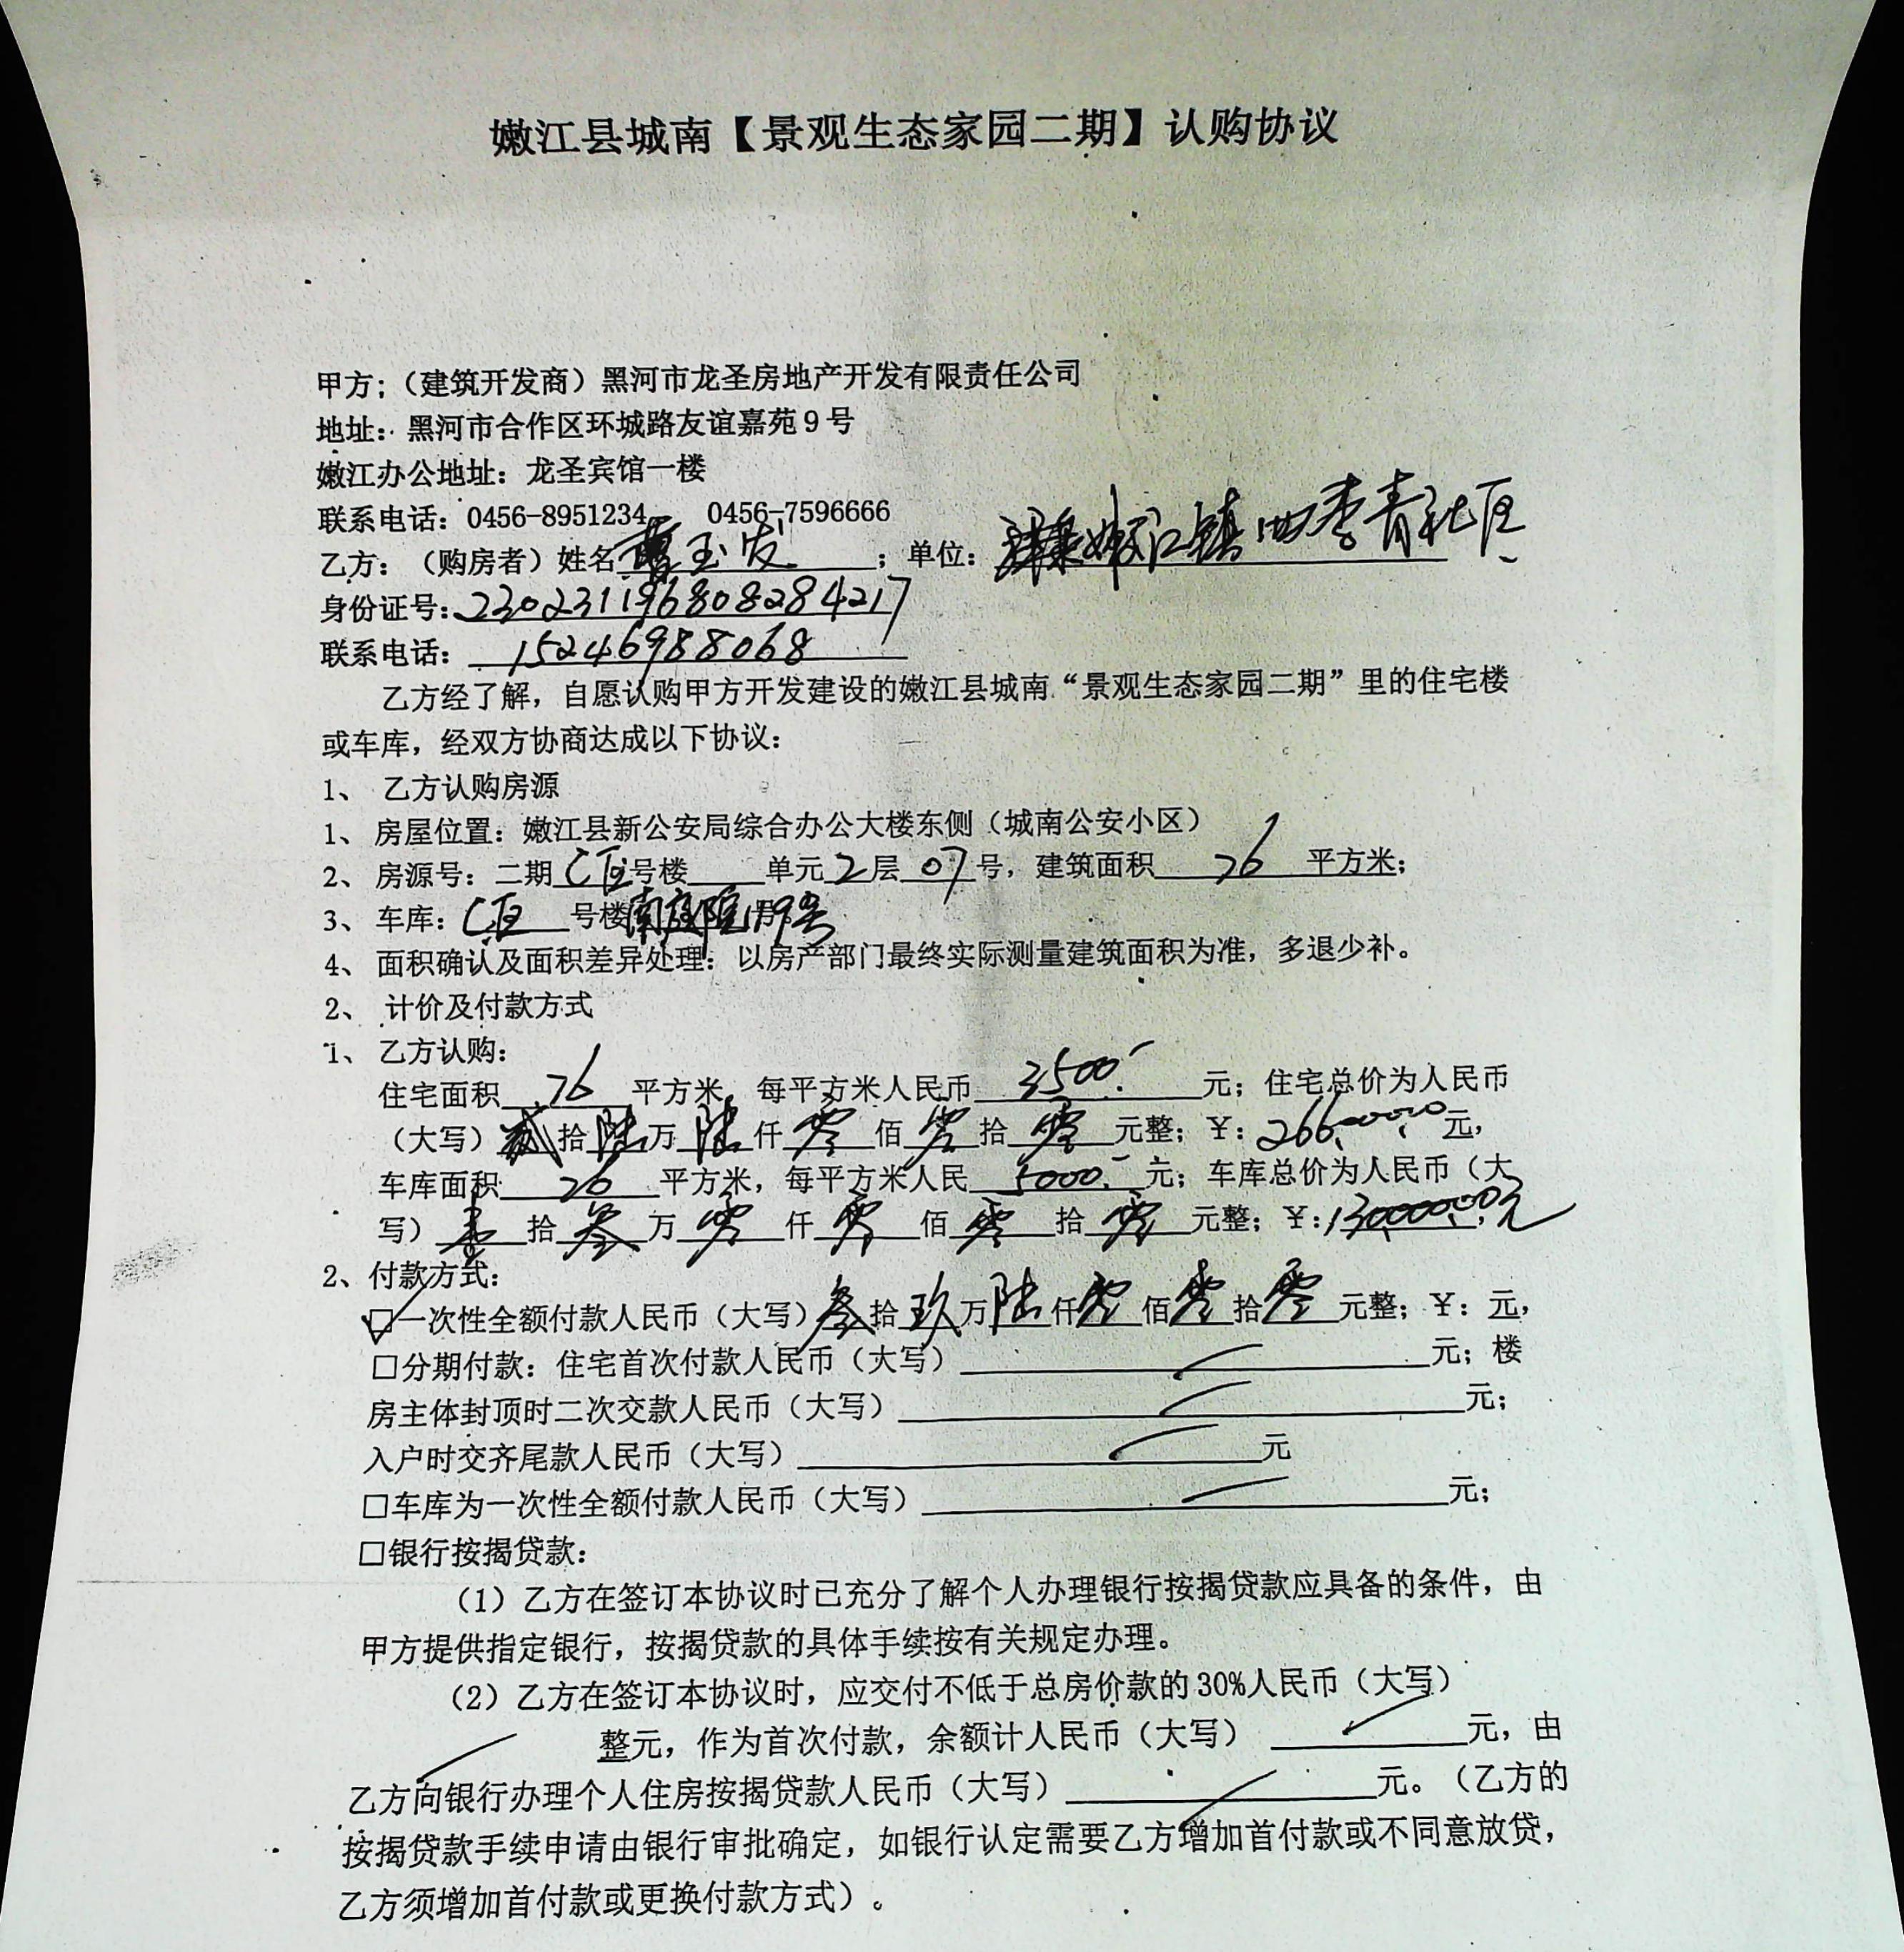 嫩江县城南【景观生态家园二期】认购协议
甲方：（建筑开发商）黑河市龙圣房地产开发有限责任公司
地址：黑河市合作区环城路友谊嘉苑9号
嫩江办公地址：龙圣宾馆一楼
联系电话：0456-8951234 0456-7596666
乙方：（购房者）姓名 玉发；单位：嫩江镇四季青社区
身份证号：230231196808284217
联系电话：15246988068
乙方经了解，自愿认购甲方开发建设的嫩江县城南“景观生态家园二期”里的住宅楼
或车库，经双方协商达成以下协议：
1、 乙方认购房源
1、房屋位置：嫩江县新公安局综合办公大楼东侧（城南公安小区）
2、房源号：二期C区号楼____单元2层07号，建筑面积76平方米；
3、车库：C区号楼南 院119号
4、面积确认及面积差异处理：以房产部门最终实际测量建筑面积为准，多退少补。
2、 计价及付款方式
1、乙方认购：
住宅面积76平方米，每平方米人民币3500.元；住宅总价为人民币
（大写）贰拾陆万陆仟零佰零拾零元整；￥：266000.00元，
车库面积26平方米，每平方米人民5000.元；车库总价为人民币（大
写）壹拾叁万零仟零佰零拾零元整；￥：130000.00元
2、付款方式：
☑一次性全额付款人民币（大写）叁拾玖万陆仟零佰零拾零元整；￥：元，
□分期付款：住宅首次付款人民币（大写）____元；楼
房主体封顶时二次交款人民币（大写）____元；
入户时交齐尾款人民币（大写）____元
□车库为一次性全额付款人民币（大写）____元；
□银行按揭贷款：
（1）乙方在签订本协议时已充分了解个人办理银行按揭贷款应具备的条件，由
甲方提供指定银行，按揭贷款的具体手续按有关规定办理。
（2）乙方在签订本协议时，应交付不低于总房价款的30%人民币（大写）
整元，作为首次付款，余额计人民币（大写）____元，由
乙方向银行办理个人住房按揭贷款人民币（大写）____元。（乙方的
按揭贷款手续申请由银行审批确定，如银行认定需要乙方增加首付款或不同意放贷，
乙方须增加首付款或更换付款方式）。